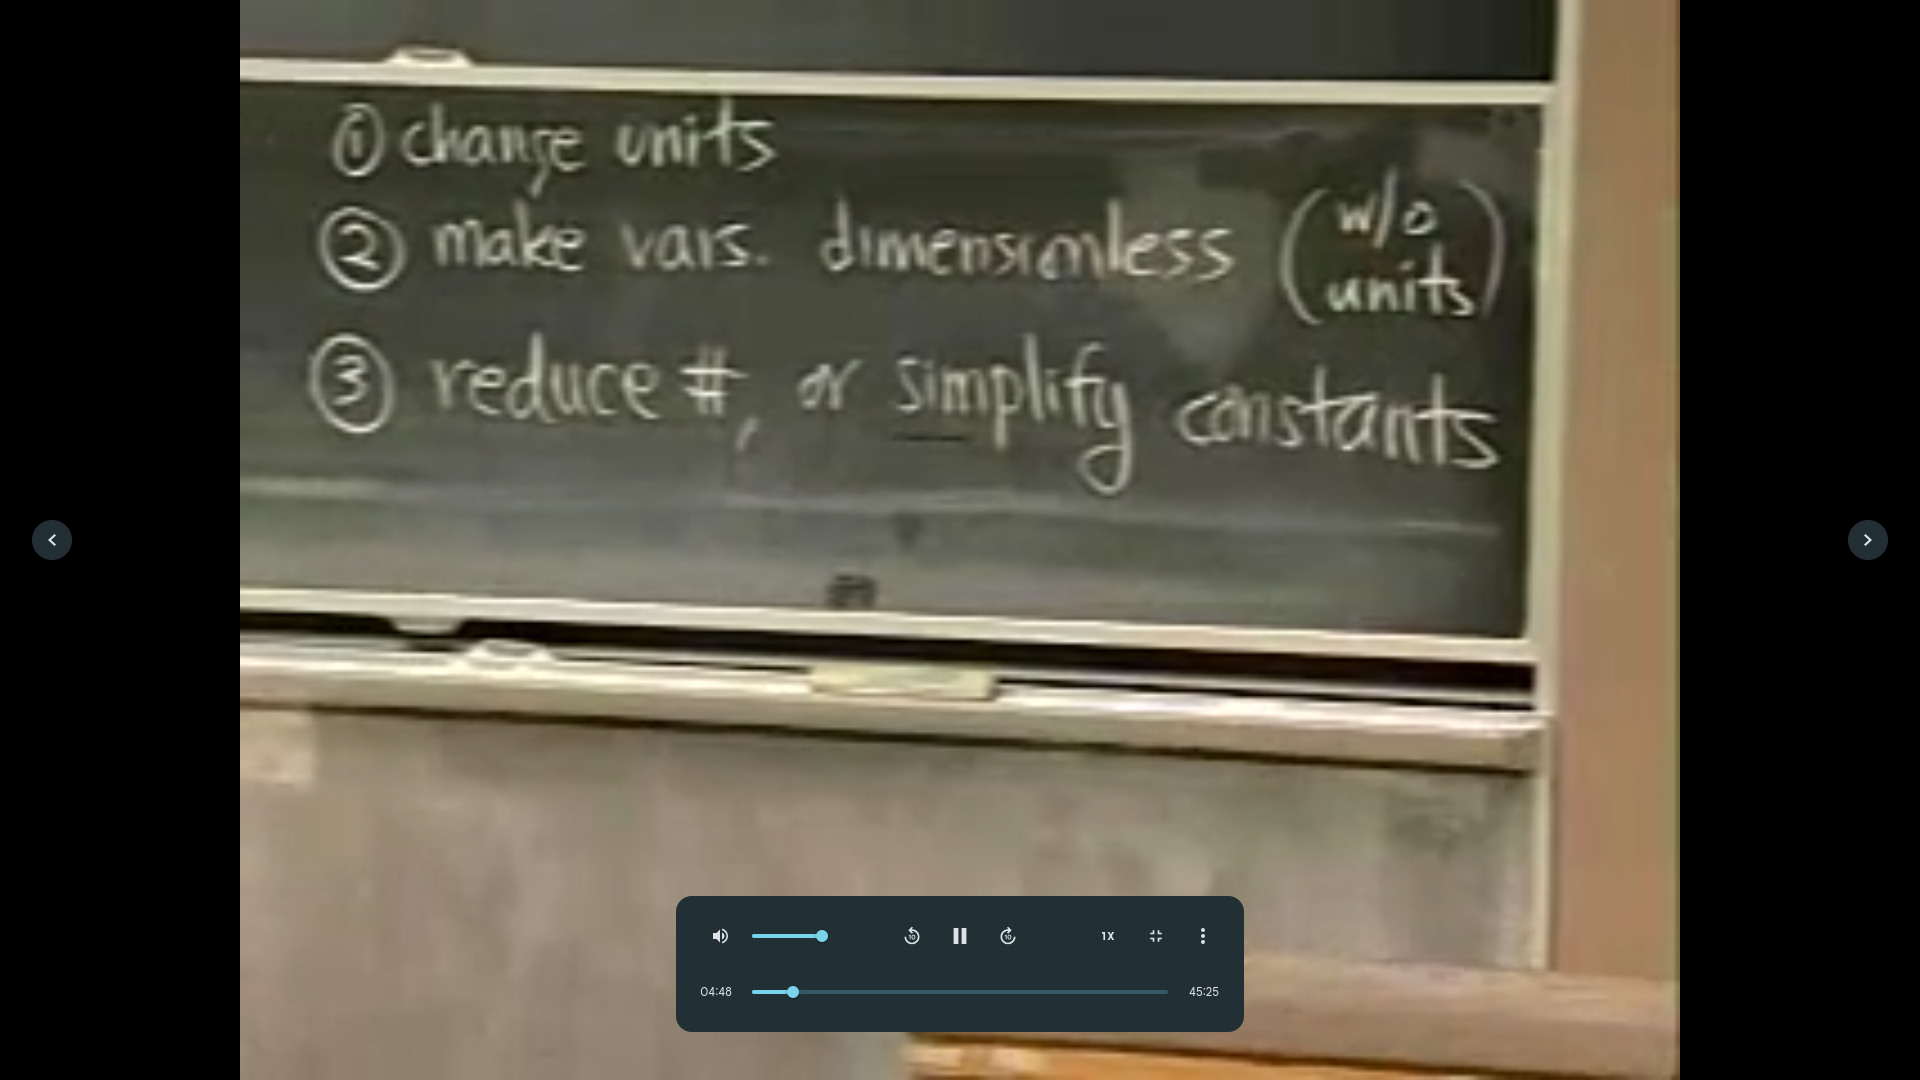 ① change units
② make vars. dimensionless (w/o units)
③ reduce #, or simplify constants
10
10
1X
04:48
45:25